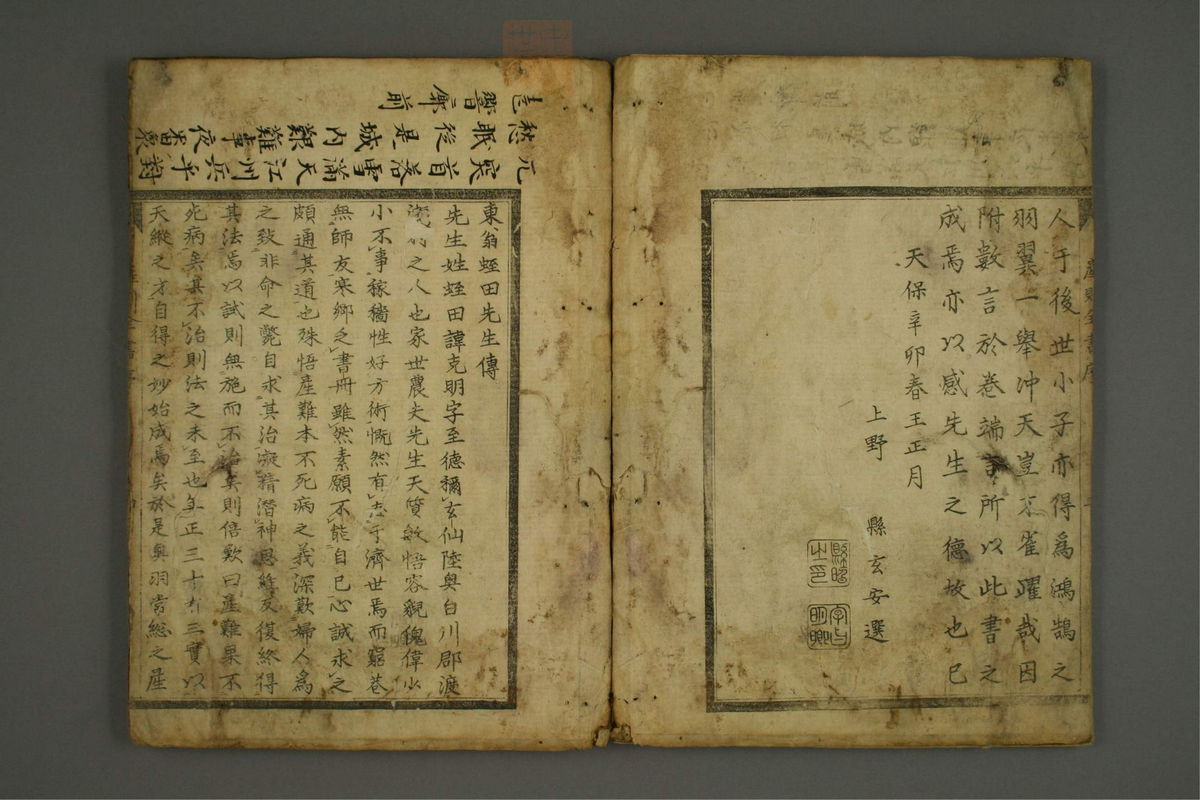 人于後世小子亦得為鴻鵠之
羽翼一舉冲天豈不雀躍哉因
附數言於卷端言所以此書之
成焉亦以感先生之德故也已
天保辛卯春王正月
上野 縣玄安選
東翁蛭田先生傳
先生姓蛭田諱克明字至德稱玄仙陸奥白川郡渡
之人也家世農夫先生天質敏悟容貌傀偉少
小不事稼穡性好方術慨然有志于濟世焉而窮巷
無師友寒鄉乏書冊雖然素願不能自已心誠求之
頗通其道也殊悟產難本不死病之義深歎婦人為
之致非命之斃自求其治凝精潛神思緯反復終得
其法焉以試則無施而不治矣則倍歎曰產難果不
死病矣其不治則法之未至也年正三十有三實以
天縱之才自得之妙始成焉矣於是奥羽常總之產
元寅首落雪滿天江川兵千對
愁眠後是城內艱難事夜番衆